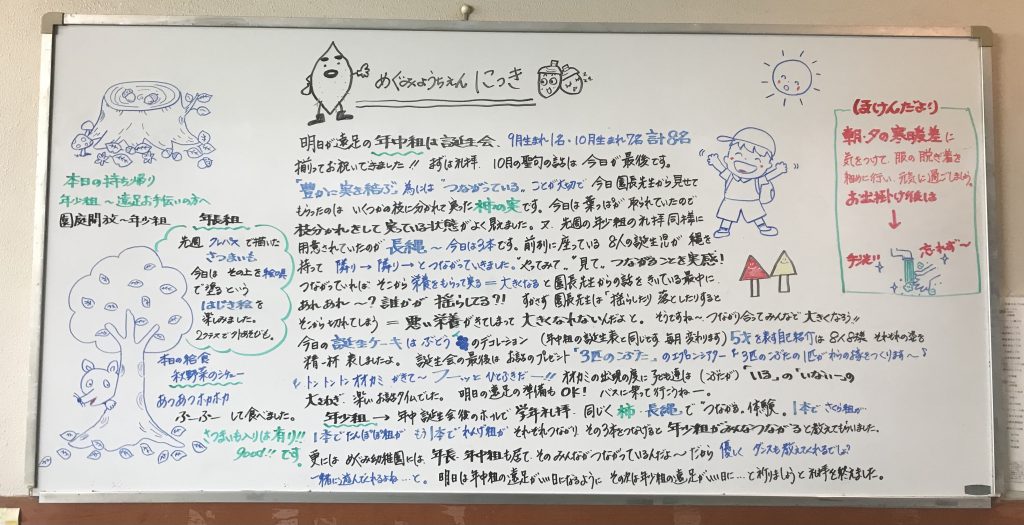 めぐみようちえん にっき
明日が遠足の年中組は誕生会、9月生まれ1名・10月生まれ7名 計8名
揃ってお祝いできました!! まずは礼拝、10月の聖句の話は今日が最後です。
「豊かに実を結ぶ」為には"つながっている"ことが大切で 今日園長先生から見せて
もらったのは いくつかの枝に分かれて実った柿の実です。今日は葉っぱが取られていたので
枝分かれをして実っている状態がよく見えました。又、先週の年少組の礼拝同様に
用意されていたのが 長縄〜今日は3本です。前列に座っている 8人の誕生児が 縄を
持って 隣り→隣り→とつながっていきました。"やってみて""見て"つながることを実感!
つながっていれば そこから 栄養をもらって実る=大きくなると園長先生からの話をきいている最中に
あれあれ〜?誰かが 揺らしてる?! すかさず 園長先生は"揺らしたり 落としたりすると
そこから切れてしまう = 悪い栄養がきてしまって 大きくなれないんだよと。そうですね〜つながり合ってみんなで 大きくなろう!!
今日の誕生ケーキは ぶどう のデコレーション (年中組の誕生表と同じです 毎月変わります) 5才を表す自己紹介は 8人8様 それぞれの姿を
精一杯 表しましたよ。 誕生会の最後は お話のプレゼント「3匹のこぶた」のエプロンシアター
トントントン オオカミ がきて〜 フーッと ひとふきだー!! オオカミの出現の度に 子ども達は (こぶたが)「いる」の「いない」の
大さわぎ、楽しいお話タイムでした。 明日の遠足の準備も OK! バスに乗って行こうねー。
年少組 → 年中 誕生会後のホールで 学年礼拝、同じく 柿・長縄 で "つながる"体験。1本で さくら組が
1本でたんぽぽ組が もう1本で れんげ組が それぞれつながり その3本をつなげると 年少組がみんなつながる と教えてもらいました。
更には めぐみ幼稚園には、年長、年中組も居て、そのみんながつながっているんだよ〜だから 優しく ダンスも教えてくれるでしょ?
一緒に遊んでくれるよね…と。 明日は年中組の遠足がいい日になるように その次は年少組の遠足がいい日に…と祈りましょうと 礼拝を終えました。
本日の持ち帰り
年少組〜遠足お手伝いの方へ
園庭開放〜年少組
年長組
先週 クレパスで描いた
さつまいも
今日は その上を絵の具
で塗るという
はじき絵を
楽しみました。
本日の給食
秋野菜のシチュー
あつあつホカホカ
ふーふー して食べました。
さつまいも入りは有り!!
good!! です。
ほけんだより
朝・夕の寒暖差に
気をつけて、服の脱ぎ着を
細めに行い、元気に過ごしましょう。
お出掛け後は
手洗い
忘れず〜